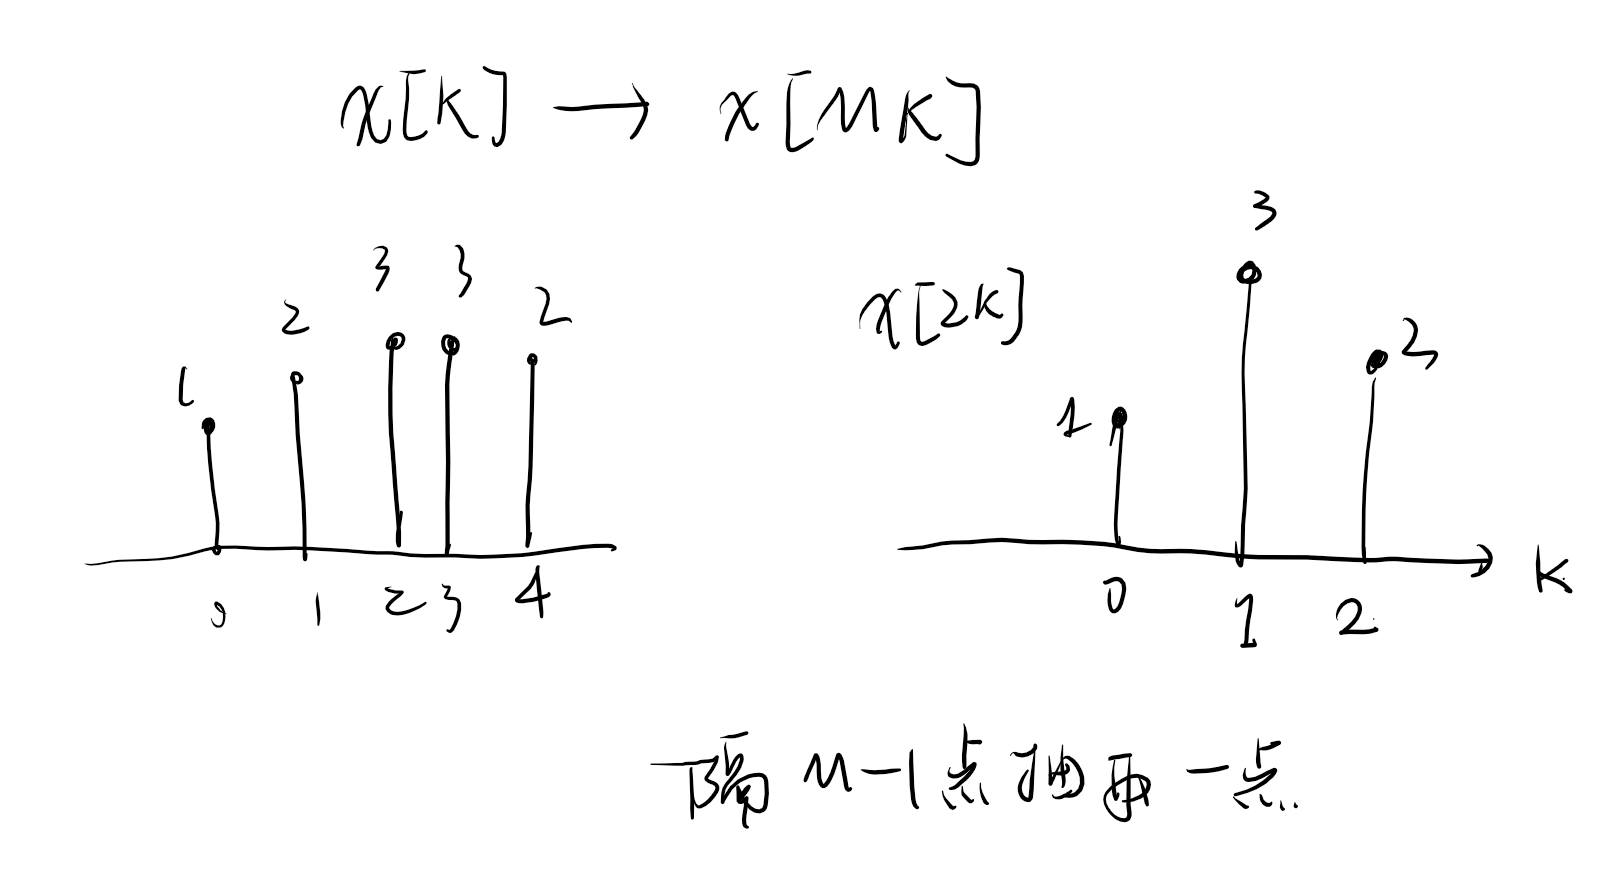 x[k] → x[Mk]
1 2 3 3 2
0 1 2 3 4
x[2k]
1 3 2
0 1 2 k
隔 M-1点抽取一点.